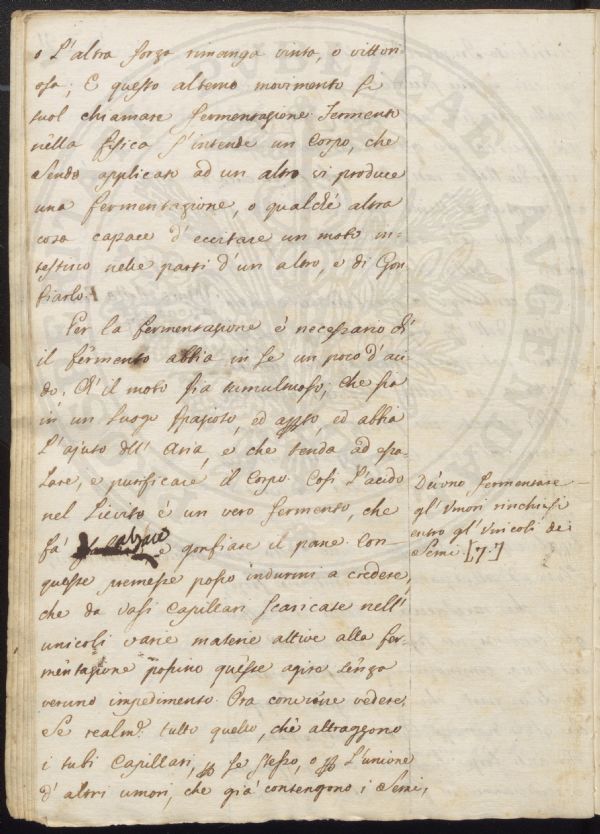 o l'altra forza rimanga vinta, o vittori-
osa; E questo alterno movimento si
suol chiamare fermentazione. Fermento
nella fisica s'intende un Corpo, che
sendo applicato ad un altro vi produce
una fermentazione, o qualche altra
cosa capace d'eccitare un moto in-
testino nelle parti d'un altro, e di Gon-
fiarlo.
Per la fermentazione è necessario ch'
il fermento abbia in se un poco d'aci-
do; Ch'il moto sia tumultuoso; che sia
in un luogo spazioso, ed apto, ed abbia
l'ajuto dell' Aria, e che tenda ad esa-
lare, e purificare il Corpo. Così l'acido
nel Lievito è un vero fermento, che
fà alzare e gonfiare il pane. Con
queste premesse posso indurmi a credere,
che da vasi Capillari scaricate nell'
unicoli varie materie attive alla fer-
mentazione possino queste agire senza
veruno impedimento. Ora conviene vedere,
Se realm.e tutto quello, che attraggono
i tubi Capillari, p se stesso, o p l'unione
d'altri umori, che già contengono i Semi,
Devono fermentare
gl'umori rinchiusi
entro gl'unicoli de
Semi [7.]